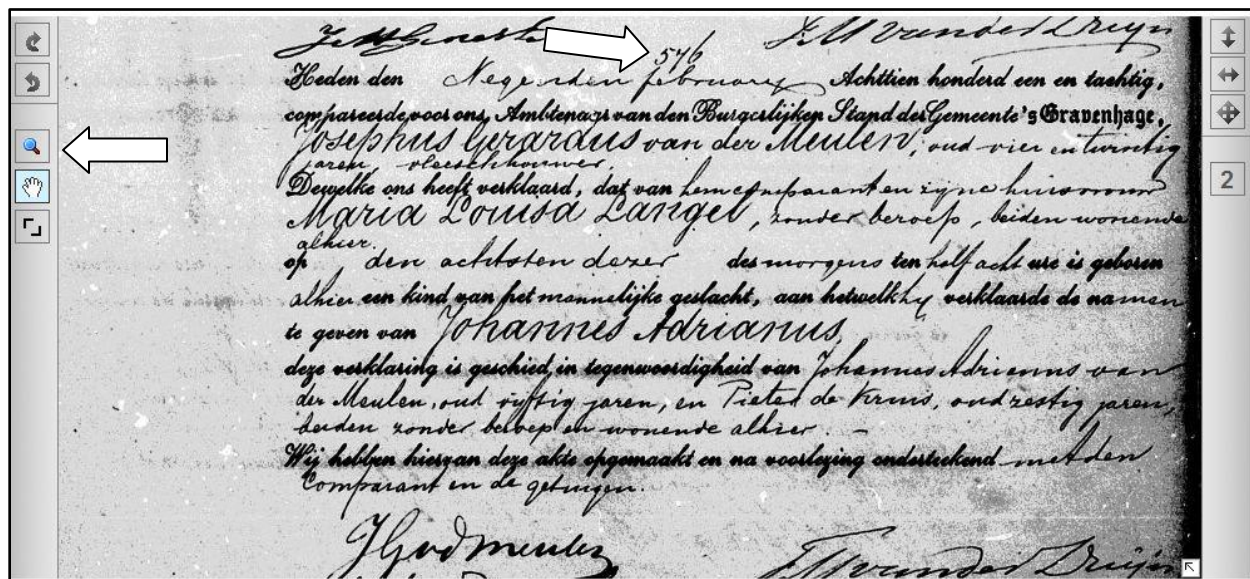 546
Heden den Negenden february Achttien honderd een en tachtig,
compareerde voor ons, Ambtenaar van den Burgerlijken Stand der Gemeente 's Gravenhage,
Josephus Gerardus van der Meulen, oud vier en twintig
jaren, vleeschhouwer,
Dewelke ons heeft verklaard, dat van hem comparant en zijne huisvrouw
Maria Louisa Langel, zonder beroep, beiden wonende
alhier.
op den achtsten dezer des morgens ten half acht ure is geboren
alhier een kind van het mannelijke geslacht, aan hetwelk hy verklaarde de namen
te geven van Johannes Adrianus,
deze verklaring is geschied in tegenwoordigheid van Johannes Adrianus van
der Meulen, oud vyftig jaren, en Pieter de Kruis, oud zestig jaren,
beiden zonder beroep en wonende alhier. -
Wij hebben hiervan deze akte opgemaakt en na voorlezing onderteekend met den
Comparant en de getuigen.
2